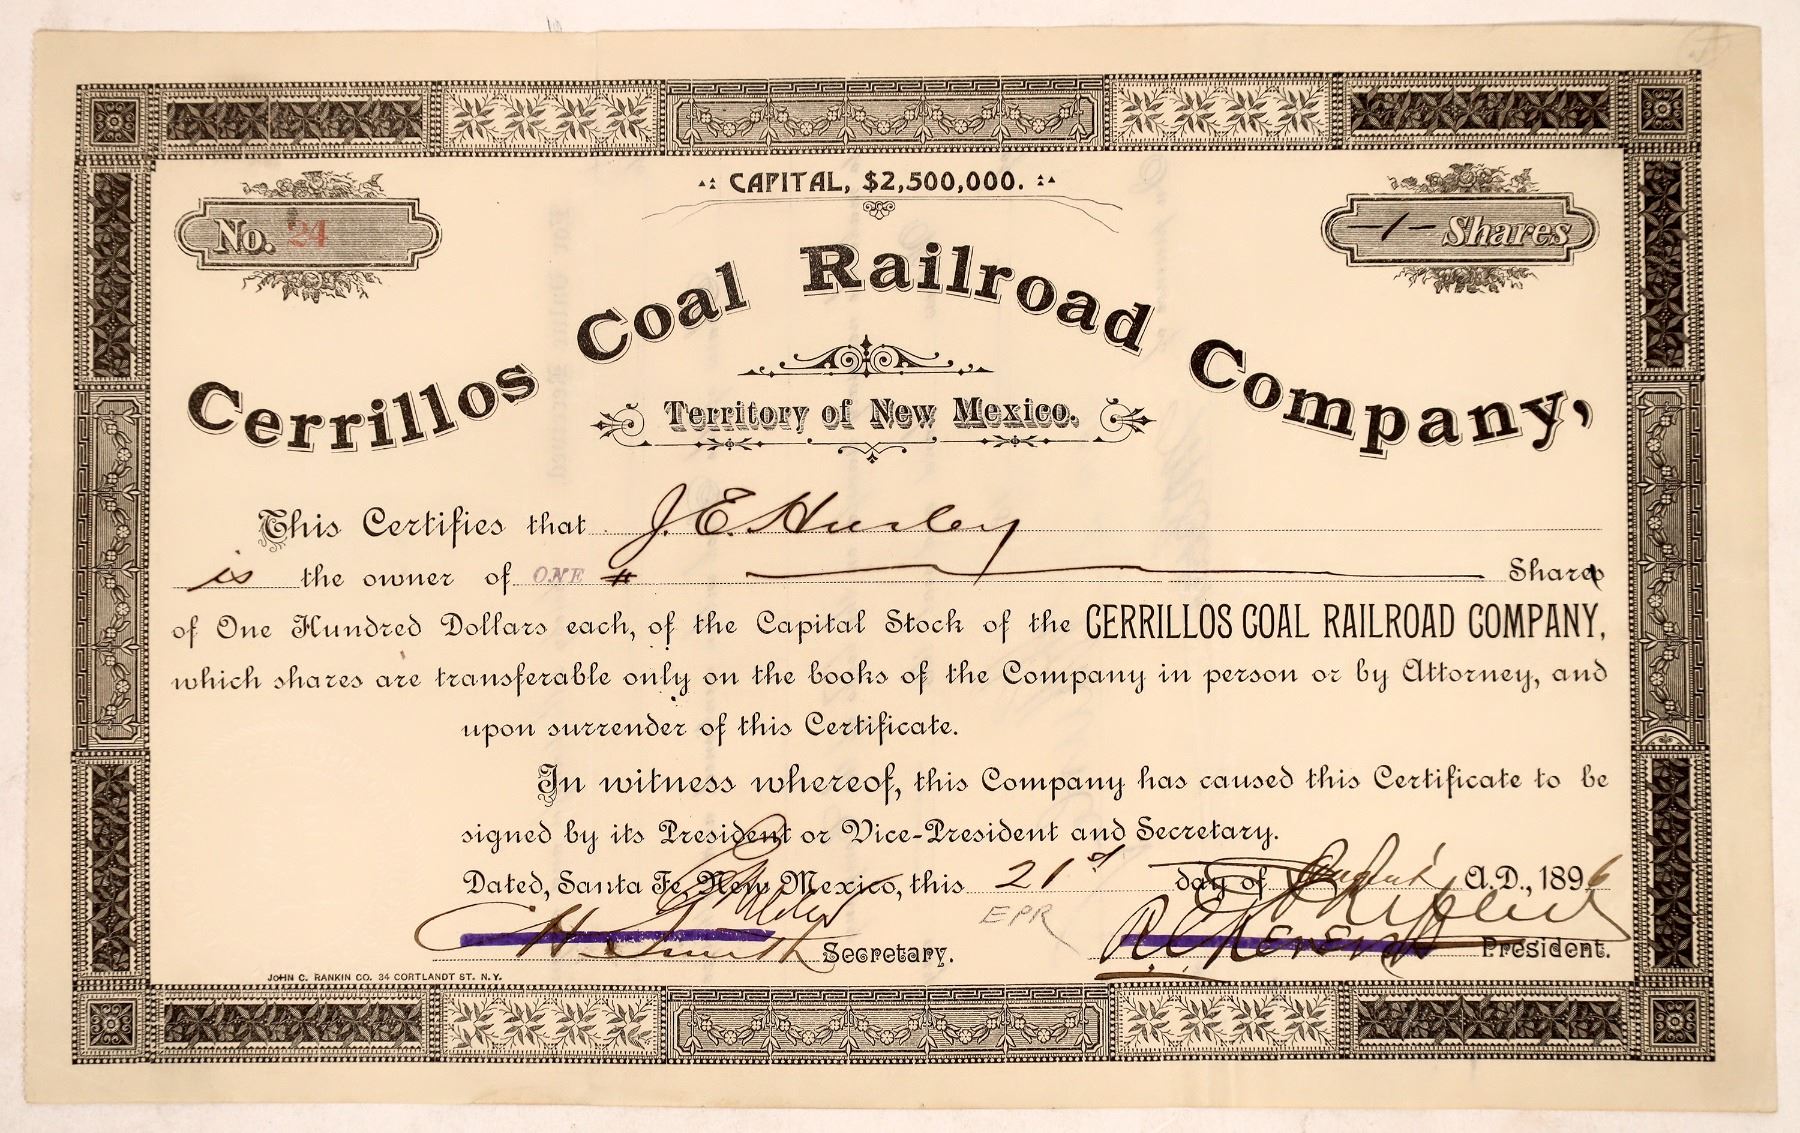 CAPITAL, $2,500,000.
No. 24
-1- Shares
Cerrillos Coal Railroad Company,
Territory of New Mexico.
This Certifies that J. E. Hurley
is the owner of ONE Shares
of One Hundred Dollars each, of the Capital Stock of the CERRILLOS COAL RAILROAD COMPANY,
which shares are transferable only on the books of the Company in person or by Attorney, and
upon surrender of this Certificate.
In witness whereof, this Company has caused this Certificate to be
signed by its President or Vice-President and Secretary.
Dated, Santa Fe, New Mexico, this 21st day of August A.D., 1896
EPR
H Smith Secretary. President.
JOHN C. RANKIN CO. 34 CORTLANDT ST. N.Y.